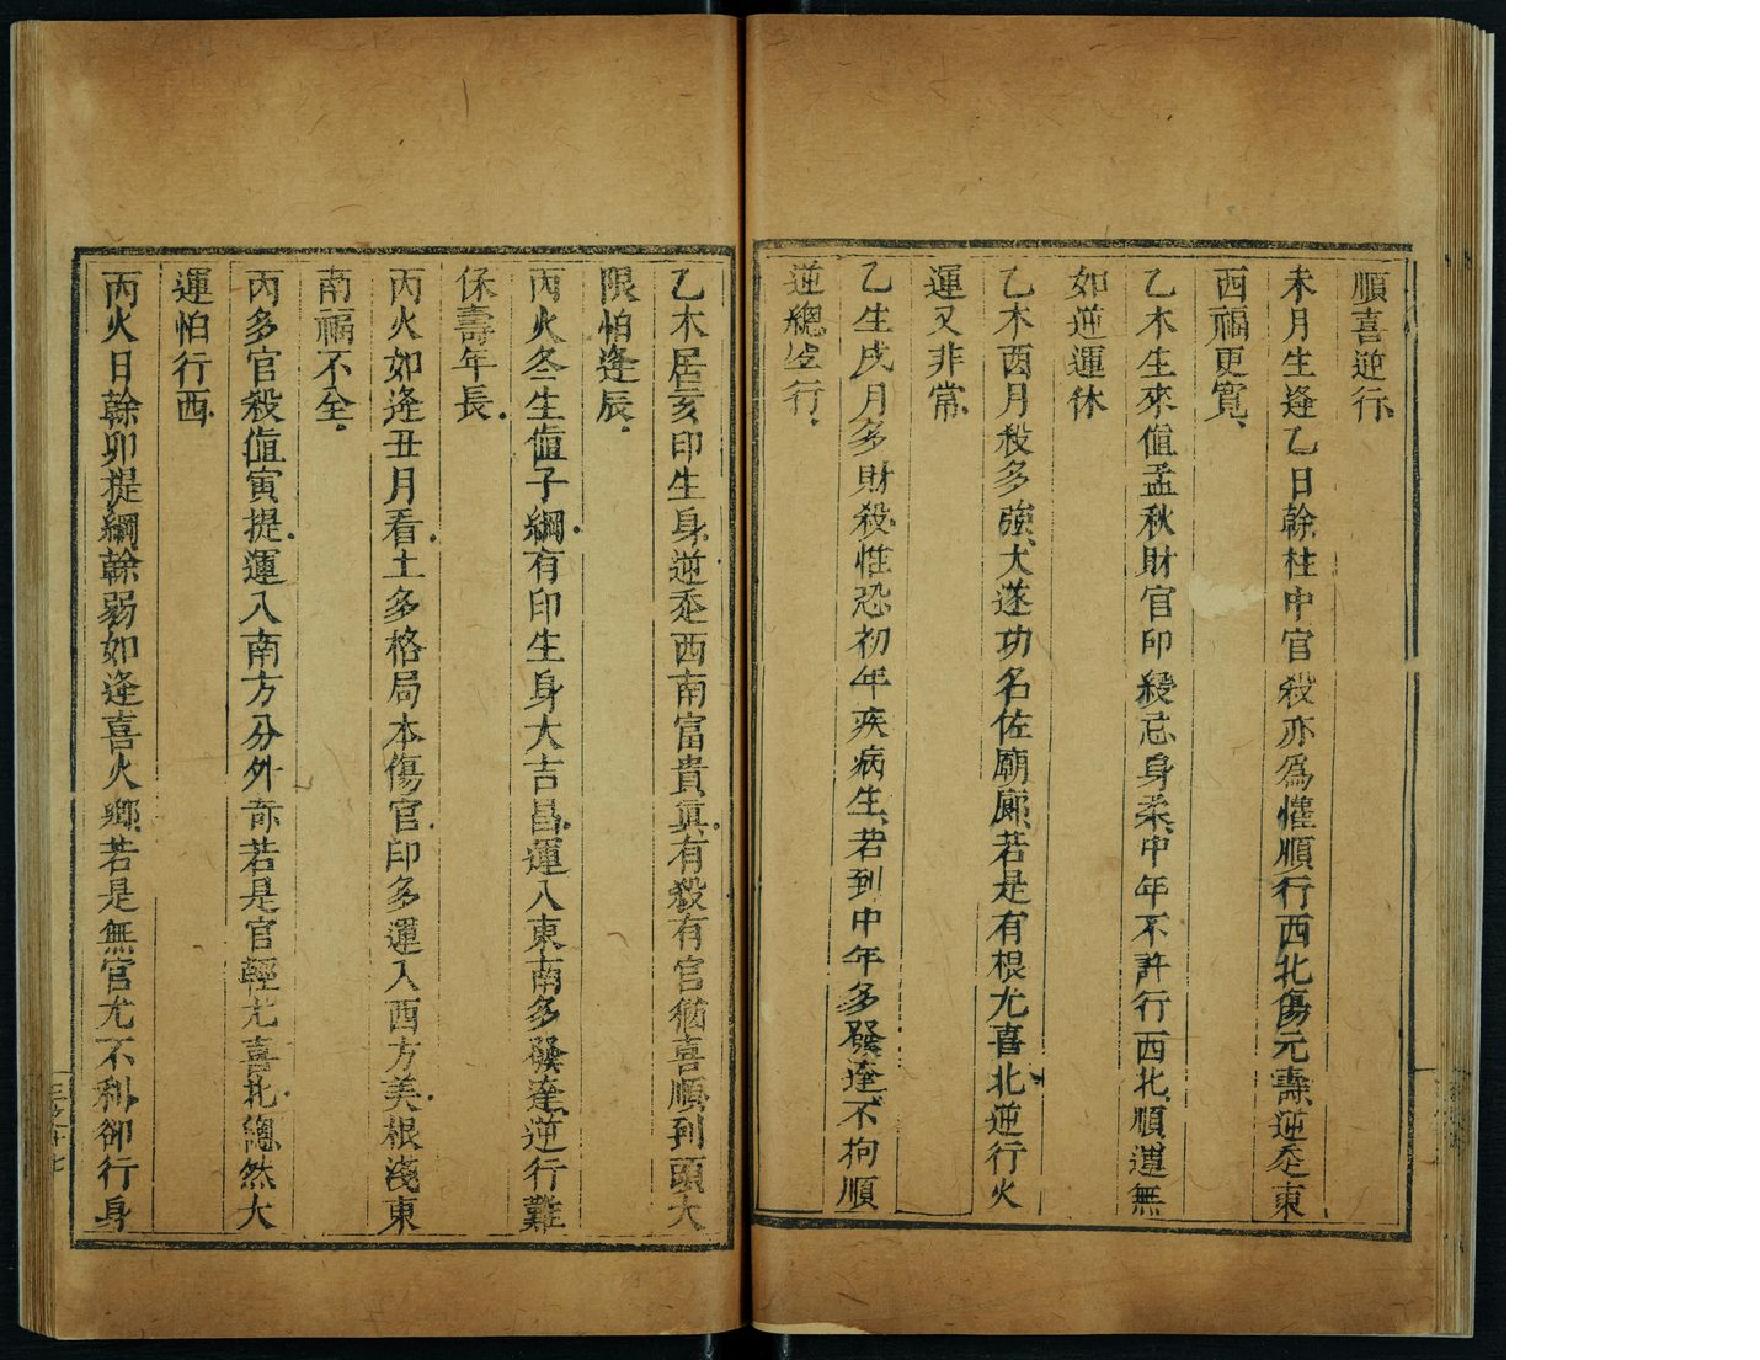 順喜逆行
未月生逢乙日榦柱中官殺亦爲懽順行西北傷元壽逆𫝹東
西福更寬
乙木生來値孟秋財官印綬忌身柔中年不許行西北順遭無
如逆運休
乙木酉月殺多強大遂功名佐廟廊若是有根尤喜北逆行火
運又非常
乙生戌月多財殺惟恐初年疾病生若到中年多發達不拘順
逆總岦行
乙木居亥印生身逆𫝹西南富貴眞有殺有官猶喜順到頭大
限怕逢辰
丙火冬生値子綱有印生身大吉昌運入東南多發達逆行難
保壽年長
丙火如逢丑月看土多格局本傷官印多運入西方美根淺東
南福不全
丙多官殺値寅提運入南方分外奇若是官輕尤喜北總然大
運怕行西
丙火日榦卯提綱榦弱如逢喜火鄉若是無官尤不利卻行身